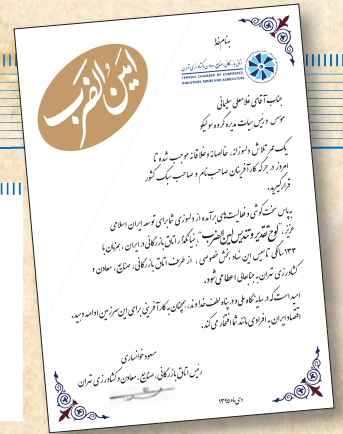 بنام خدا
امین الضرب
اتاق بازرگانی، صنایع، معادن و کشاورزی تهران
TEHRAN CHAMBER OF COMMERCE,
INDUSTRIES, MINES AND AGRICULTURE
جناب آقای غلامعلی سلیمانی
موسس و رئیس هیات مدیره گروه سولیکو
یک عمر تلاش دلسوزانه، خالصانه و خلاقانه موجب شده تا
امروز در جرگه کارآفرینان صاحب نام و صاحب سبک کشور
قرار گیرید.
بپاس سخت کوشی و فعالیت‌های برآمده از دلسوزی شما برای توسعه ایران اسلامی
عزیز، "لوح تقدیر و تندیس امین الضرب" بنیانگذار اتاق بازرگانی در ایران، همزمان با
۱۳۳ سالگی تاسیس این نهاد بخش خصوصی، از طرف اتاق بازرگانی، صنایع، معادن و
کشاورزی تهران به جنابعالی اعطا می شود.
امید است که در سایه نگاه ملی و در پناه لطف خداوند، همچنان به کارآفرینی برای این سرزمین ادامه دهید.
اقتصاد ایران به افرادی مانند شما افتخار می کند.
مسعود خوانساری
رئیس اتاق بازرگانی، صنایع، معادن و کشاورزی تهران
دی ماه ۱۳۹۵